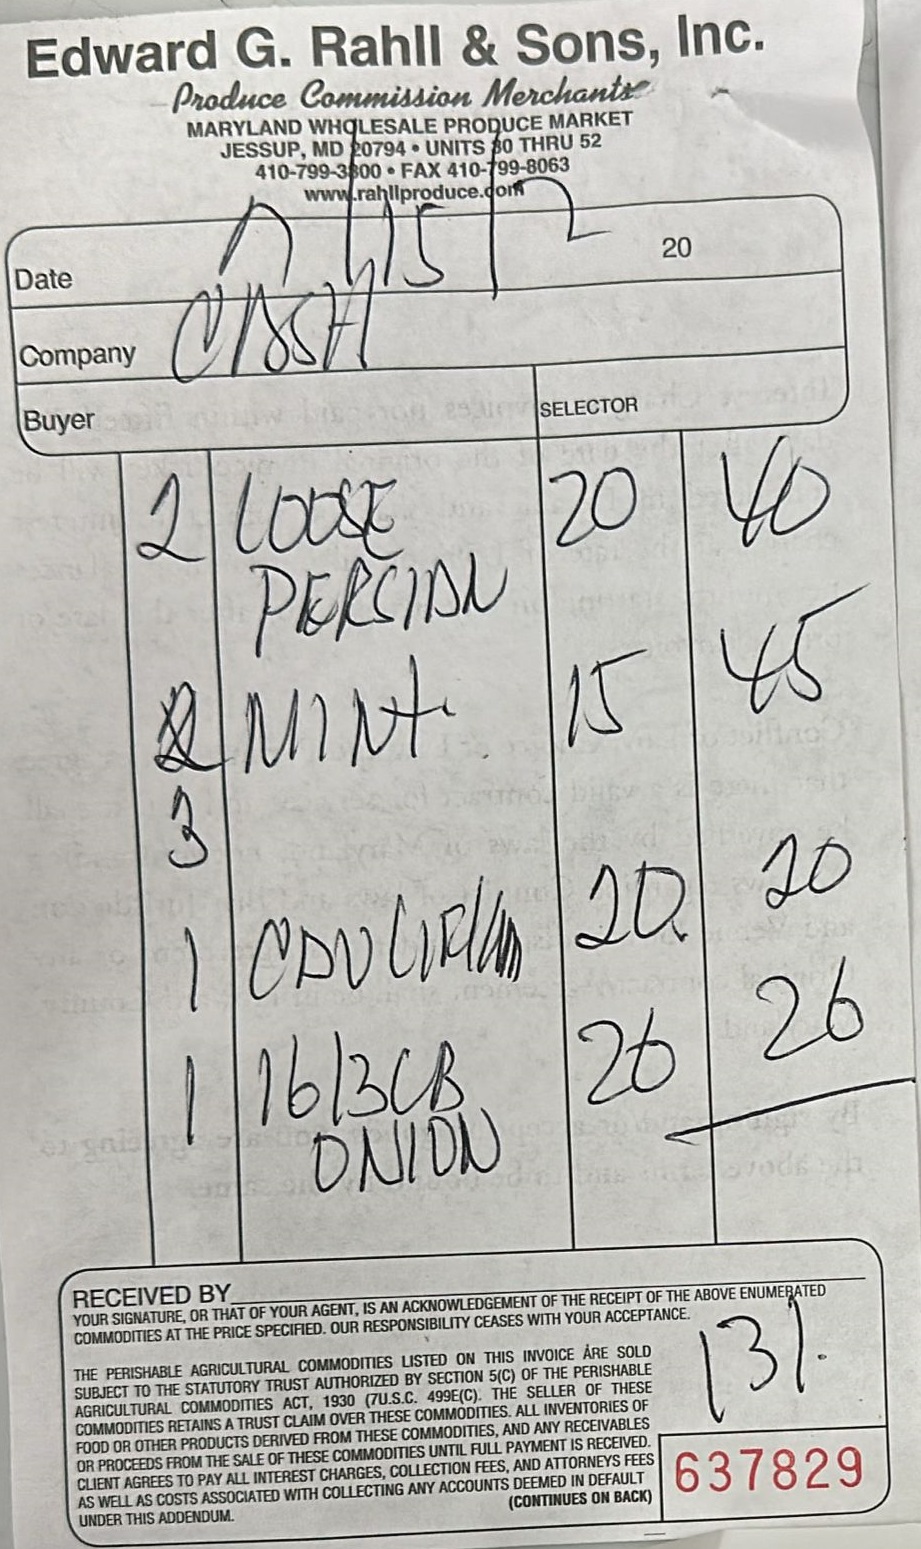 Edward G. Rahll & Sons, Inc.
Produce Commission Merchants
MARYLAND WHOLESALE PRODUCE MARKET
JESSUP, MD 20794 • UNITS 30 THRU 52
410-799-3800 • FAX 410-799-8063
www.rahllproduce.com
Date 20
Company CASH
Buyer SELECTOR
2 LOOSE 20 40
PERSIAN
2 MINt 15 45
3
1 20 20
1 16/3CB 26 26
ONION
RECEIVED BY
YOUR SIGNATURE, OR THAT OF YOUR AGENT, IS AN ACKNOWLEDGEMENT OF THE RECEIPT OF THE ABOVE ENUMERATED
COMMODITIES AT THE PRICE SPECIFIED. OUR RESPONSIBILITY CEASES WITH YOUR ACCEPTANCE.
131.
THE PERISHABLE AGRICULTURAL COMMODITIES LISTED ON THIS INVOICE ARE SOLD
SUBJECT TO THE STATUTORY TRUST AUTHORIZED BY SECTION 5(C) OF THE PERISHABLE
AGRICULTURAL COMMODITIES ACT, 1930 (7U.S.C. 499E(C). THE SELLER OF THESE
COMMODITIES RETAINS A TRUST CLAIM OVER THESE COMMODITIES. ALL INVENTORIES OF
FOOD OR OTHER PRODUCTS DERIVED FROM THESE COMMODITIES, AND ANY RECEIVABLES
OR PROCEEDS FROM THE SALE OF THESE COMMODITIES UNTIL FULL PAYMENT IS RECEIVED.
CLIENT AGREES TO PAY ALL INTEREST CHARGES, COLLECTION FEES, AND ATTORNEYS FEES
AS WELL AS COSTS ASSOCIATED WITH COLLECTING ANY ACCOUNTS DEEMED IN DEFAULT
UNDER THIS ADDENDUM. (CONTINUES ON BACK)
637829